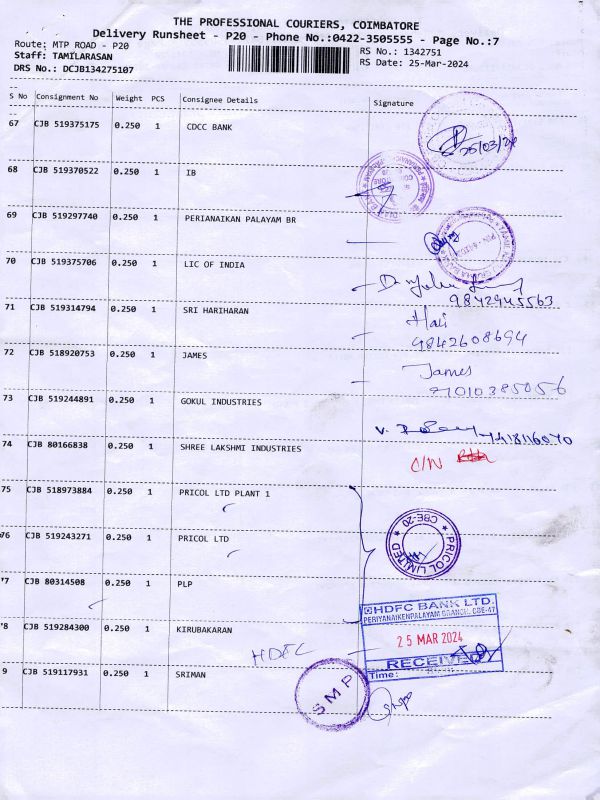 THE PROFESSIONAL COURIERS, COIMBATORE
Delivery Runsheet - P20 - Phone No.:0422-3505555 - Page No.:7
Route: MTP ROAD - P20
RS No.: 1342751
Staff: TAMILARASAN
RS Date: 25-Mar-2024
DRS No.: DCJB134275107
S No Consignment No Weight PCS Consignee Details Signature
67 CJB 519375175 0.250 1 CDCC BANK
25/03/24
68 CJB 519370522 0.250 1 IB
69 CJB 519297740 0.250 1 PERIANAIKAN PALAYAM BR
70 CJB 519375706 0.250 1 LIC OF INDIA
9842945563
71 CJB 519314794 0.250 1 SRI HARIHARAN
Hari
9842608694
72 CJB 518920753 0.250 1 JAMES
James
73 CJB 519244891 0.250 1 GOKUL INDUSTRIES
V.
74 CJB 80166838 0.250 1 SHREE LAKSHMI INDUSTRIES
C/N
75 CJB 518973884 0.250 1 PRICOL LTD PLANT 1
76 CJB 519243271 0.250 1 PRICOL LTD
PRICOL LIMITED
CBE-20
77 CJB 80314508 0.250 1 PLP
HDFC BANK LTD.
PERIYANAIKENPALAYAM BRANCH, CBE-47
78 CJB 519284300 0.250 1 KIRUBAKARAN
25 MAR 2024
HDFC
RECEIVED
Time:
9 CJB 519117931 0.250 1 SRIMAN
SMP